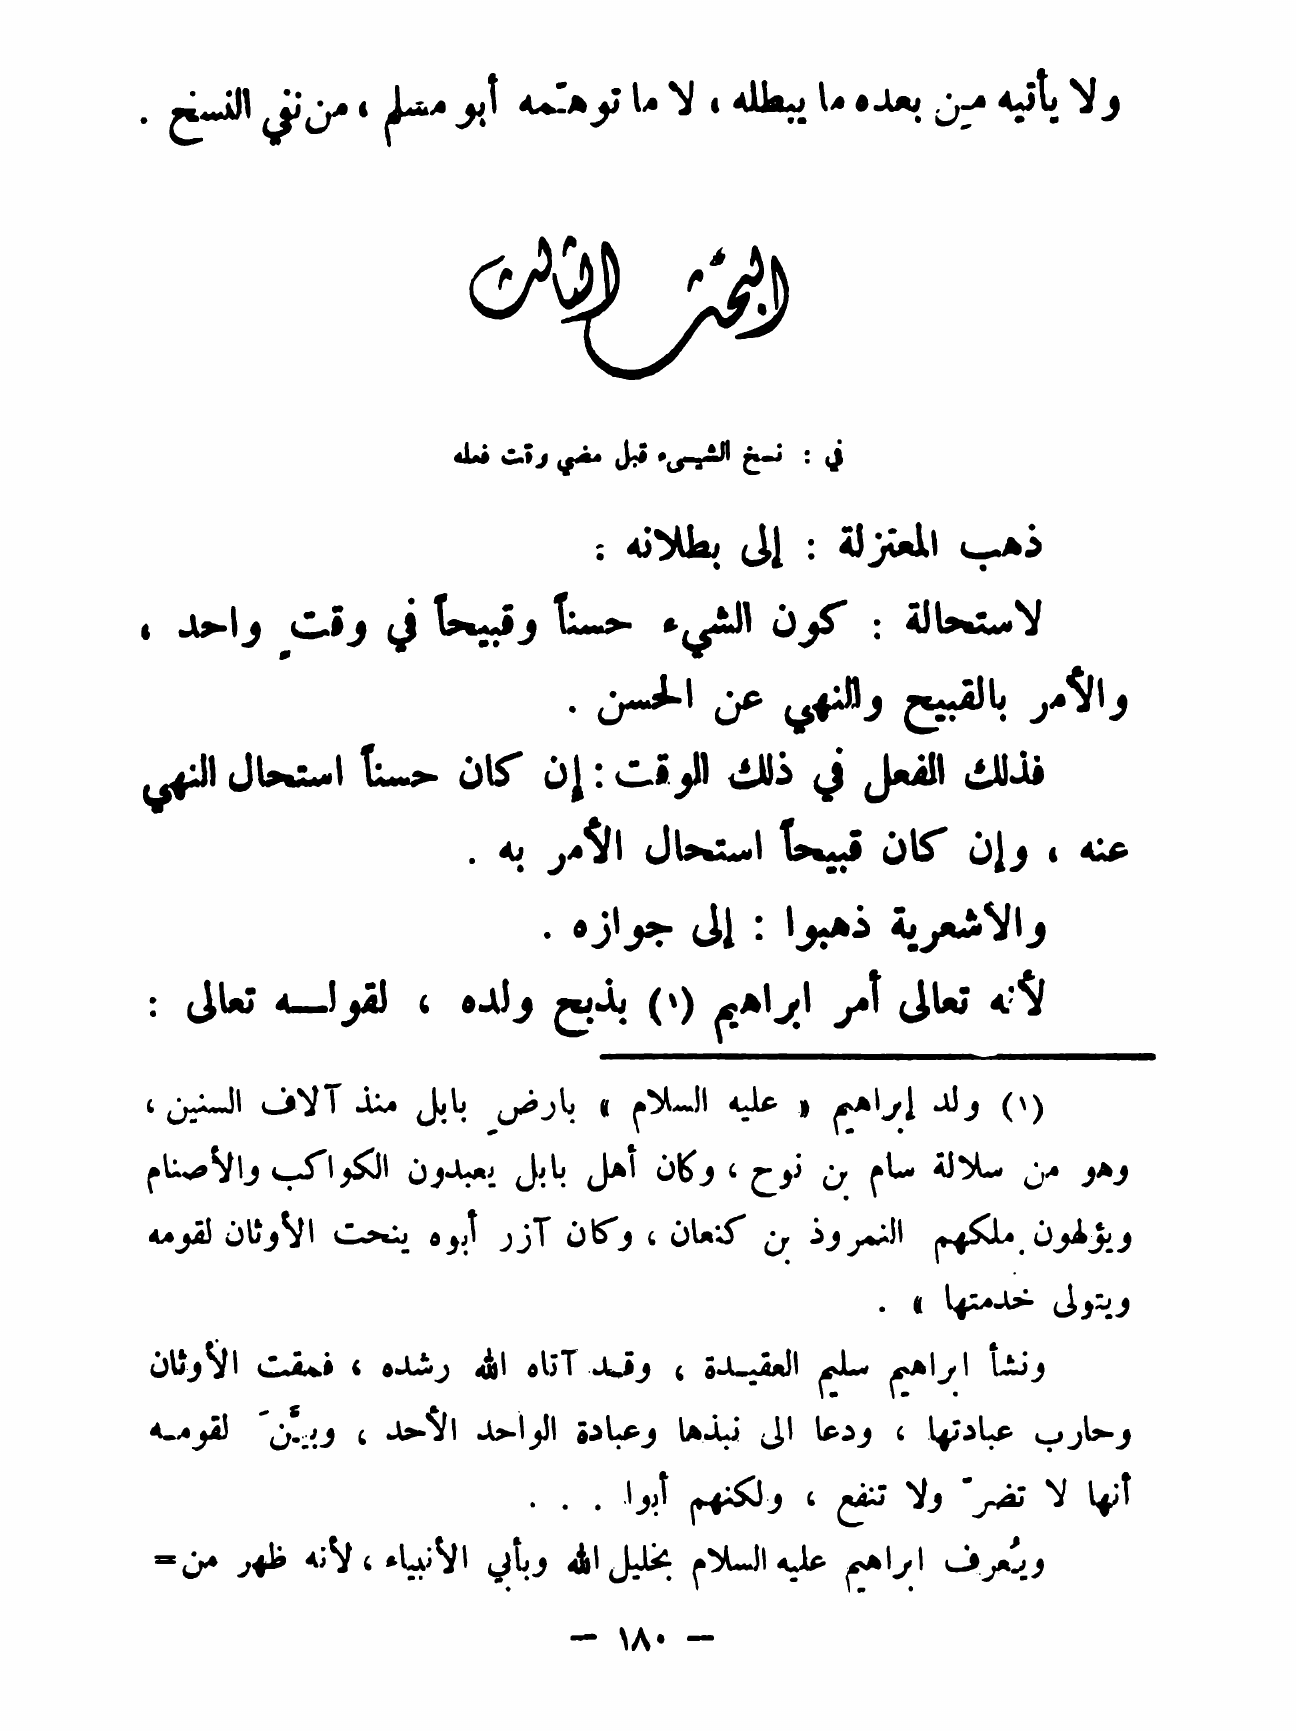 ولا يأتيه من بعده ما يبطله ، لا ما توهّمه أبو مسلم ، من نفي النسخ .
البحث الثالث
في : نسخ الشيىء قبل مضي وقت فعله
ذهب المعتزلة : إلى بطلانه :
لاستحالة : كون الشيء حسناً وقبيحاً في وقتٍ واحد ،
والأمر بالقبيح والنهي عن الحسن .
فذلك الفعل في ذلك الوقت : إن كان حسناً استحال النهي
عنه ، وإن كان قبيحاً استحال الأمر به .
والأشعرية ذهبوا : إلى جوازه .
لأنه تعالى أمر ابراهيم (١) بذبح ولده ، لقولـــه تعالى :
(١) ولد إبراهيم « عليه السلام » بارضٍ بابل منذ آلاف السنين ،
وهو من سلالة سام بن نوح ، وكان أهل بابل يعبدون الكواكب والأصنام
ويؤلهون ملكهم النمروذ بن كنعان ، وكان آزر أبوه ينحت الأوثان لقومه
ويتولى خدمتها » .
ونشأ ابراهيم سليم العقيـدة ، وقـد آتاه الله رشده ، فمقت الأوثان
وحارب عبادتها ، ودعا الى نبذها وعبادة الواحد الأحد ، وبيَّنَ لقومـه
أنها لا تضرّ ولا تنفع ، ولكنهم أبوا . . .
ويُعرف ابراهيم عليه السلام بخليل الله وبأبي الأنبياء ، لأنه ظهر من =
— ١٨٠ —